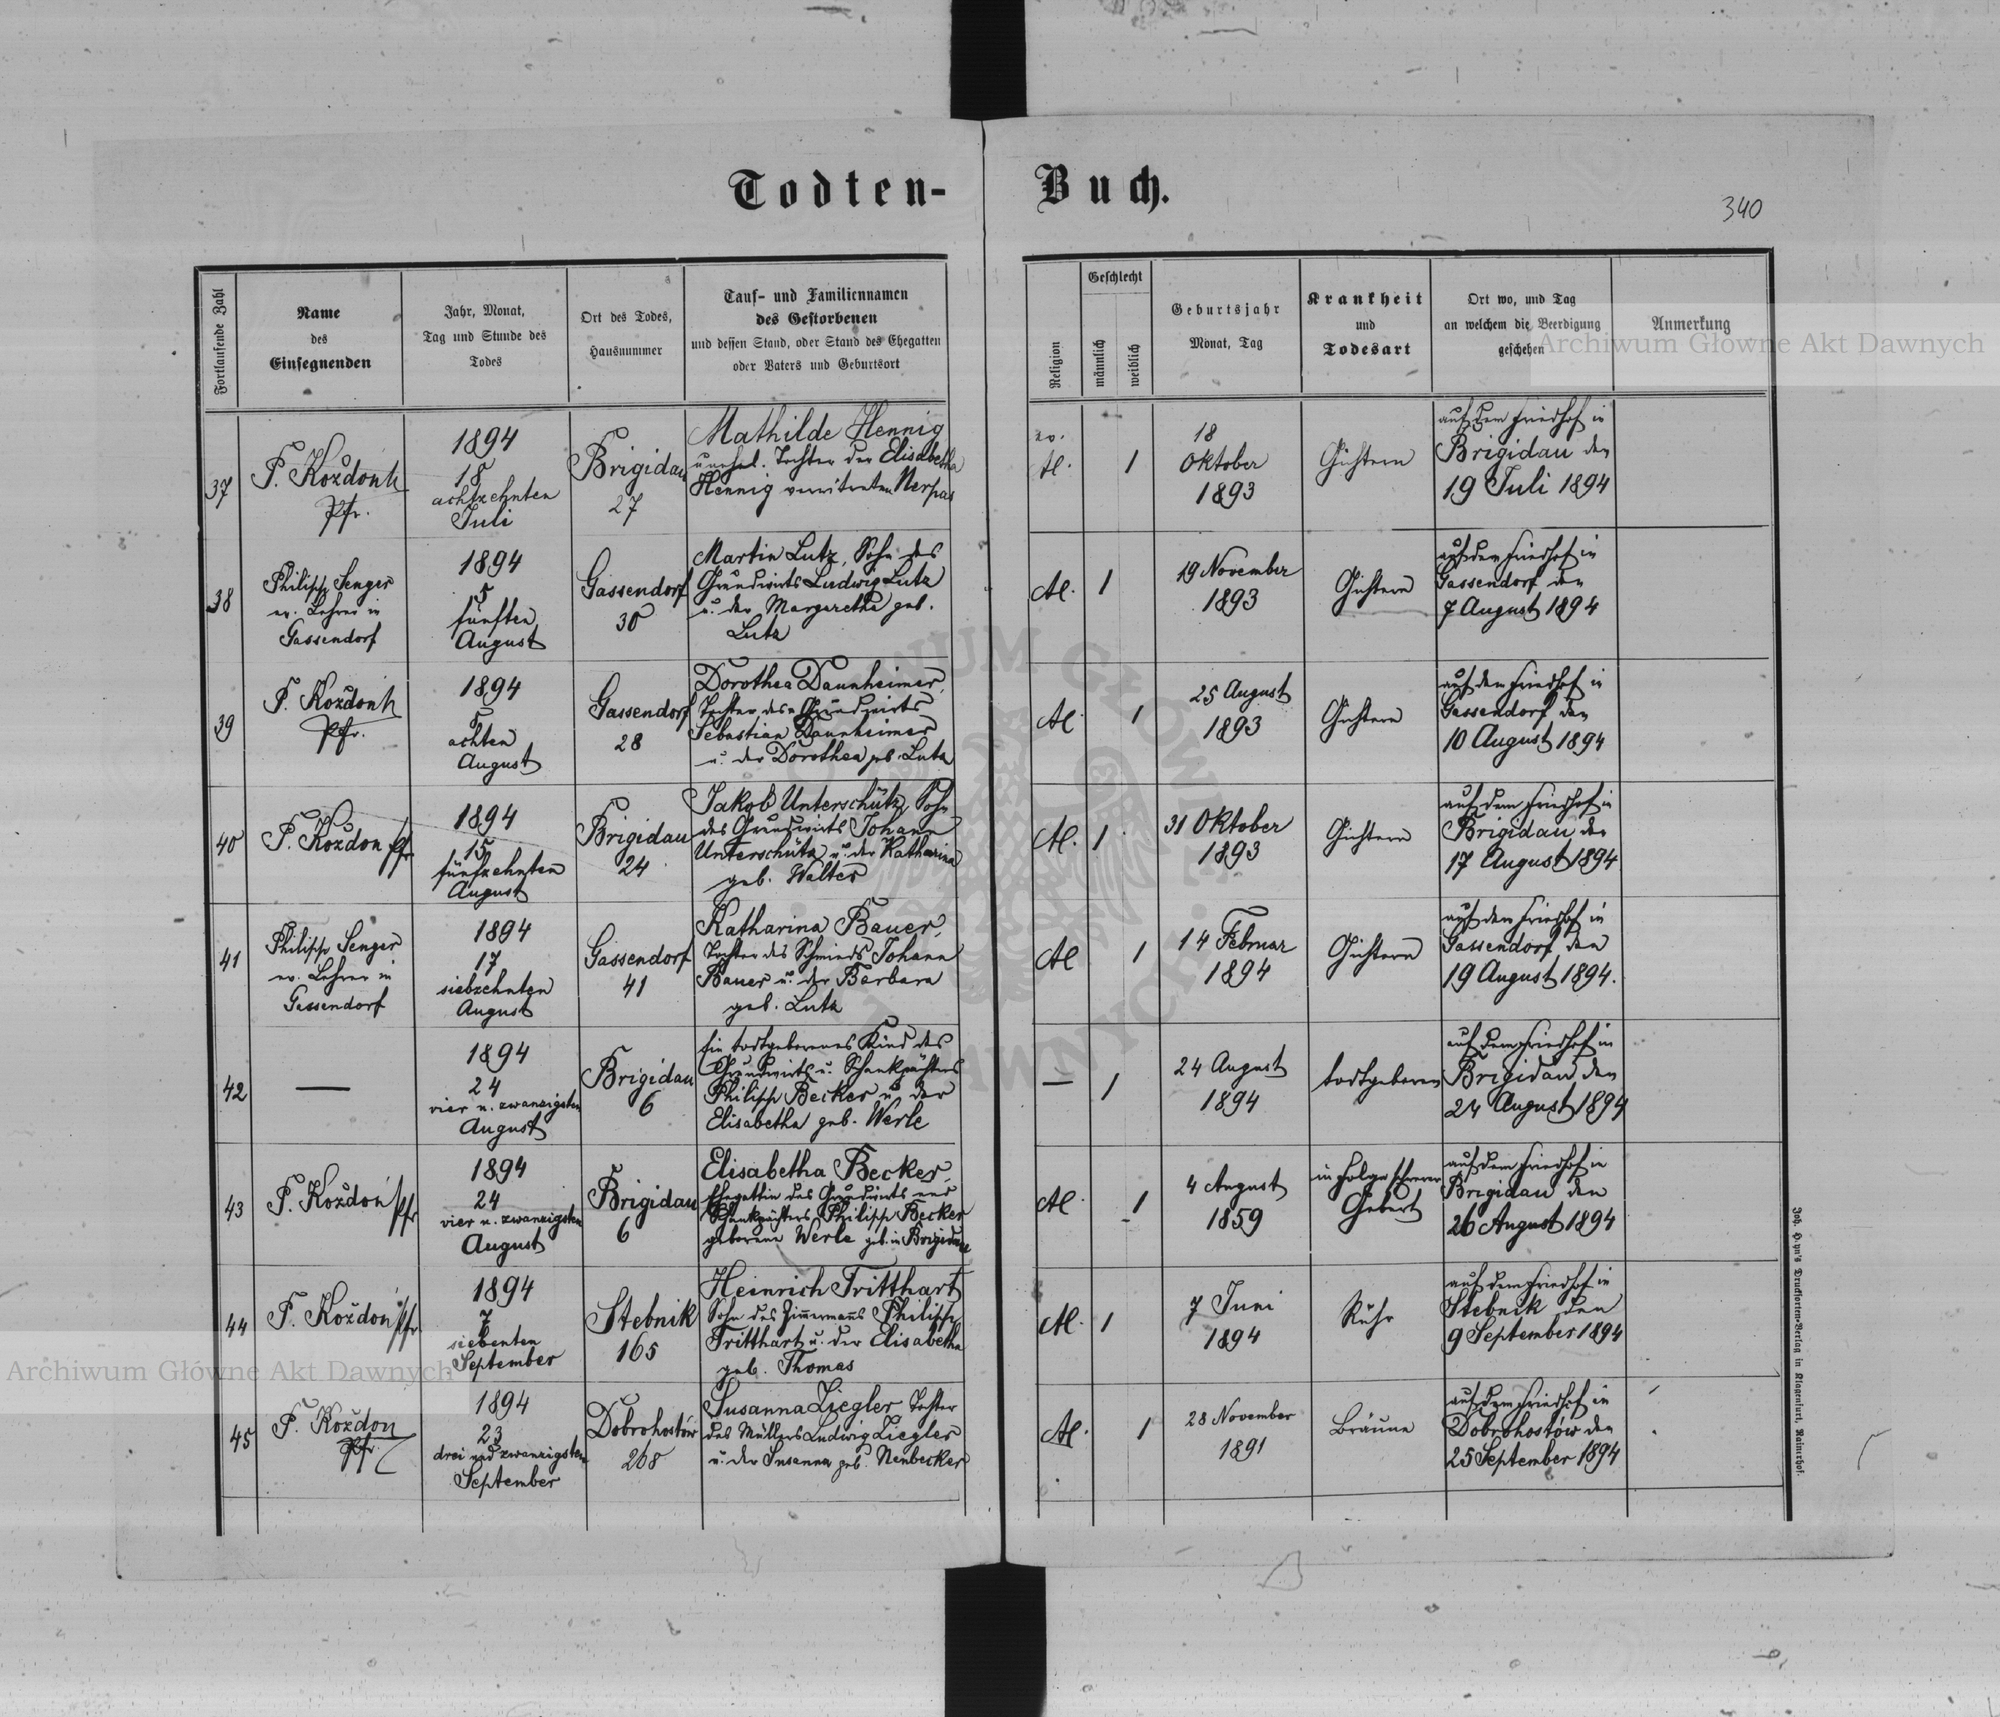 Todten-Buch.
340
Fortlaufende Zahl
Name
des
Einsegnenden
Jahr, Monat,
Tag und Stunde des
Todes
Ort des Todes,
Hausnummer
Tauf- und Familiennamen
des Gestorbenen
und dessen Stand, oder Stand des Ehegatten
oder Vaters und Geburtsort
Religion
Geschlecht
männlich
weiblich
Geburtsjahr
Monat, Tag
Krankheit
und
Todesart
Ort wo, und Tag
an welchem die Beerdigung
geschehen
Anmerkung
Archiwum Główne Akt Dawnych
37
F. Koždoň
Pfr.
1894
18
achtzehnten
Juli
Brigidau
27
Mathilde Hennig
unehel. Tochter der Elisabetha
Hennig
ev.
A.
1
18
Oktober
1893
Gichtern
auf dem Friedhof in
Brigidau den
19 Juli 1894
38
Philipp Senger
ev. Lehrer in
Gassendorf
1894
5
fünften
August
Gassendorf
30
Martin Lutz, Sohn des
Grundwirts Ludwig Lutz
u. der Margaretha geb.
Lutz
A.
1
19 November
1893
Gichtern
auf dem Friedhof in
Gassendorf den
7 August 1894
39
F. Koždoň
Pfr.
1894
achten
August
Gassendorf
28
Dorothea Dannheimer,
Tochter des Grundwirts
Sebastian Dannheimer
u. der Dorothea geb. Lutz
A.
1
25 August
1893
Gichtern
auf dem Friedhof in
Gassendorf den
10 August 1894
40
F. Koždon Pfr
1894
15
fünfzehnten
August
Brigidau
24
Jakob Unterschütz, Sohn
des Grundwirts Johann
Unterschütz u. der Katharina
geb. Walter
A.
1
31 Oktober
1893
Gichtern
auf dem Friedhof in
Brigidau den
17 August 1894
41
Philipp Senger
ev. Lehrer in
Gassendorf
1894
17
siebzehnten
August
Gassendorf
41
Katharina Bauer,
Tochter des Schmieds Johann
Bauer u. der Barbara
geb. Lutz
A.
1
14 Februar
1894
Gichtern
auf dem Friedhof in
Gassendorf den
19 August 1894.
42
—
1894
24
vier u. zwanzigsten
August
Brigidau
6
Ein todtgeborenes Kind des
Grundwirts u. Schankpächters
Philipp Becker u. der
Elisabetha geb. Werle
—
1
24 August
1894
todtgeboren
auf dem Friedhof in
Brigidau den
24 August 1894
43
F. Koždoń Pfr
1894
24
vier u. zwanzigsten
August
Brigidau
6
Elisabetha Becker,
Ehegattin des Grundwirts und
Schankpächters Philipp Becker
geborene Werle geb. in Brigidau
A.
1
4 August
1859
in Folge schwerer
Geburt
auf dem Friedhof in
Brigidau den
26 August 1894
44
F. Koždoń Pfr
1894
7
siebenten
September
Stebnik
165
Heinrich Tritthart
Sohn des Zimmermanns Philipp
Tritthart u. der Elisabetha
geb. Thomas
A.
1
7 Juni
1894
Ruhr
auf dem Friedhof in
Stebnik den
9 September 1894
45
F. Koždon
Pfr.
1894
23
drei und zwanzigsten
September
Dobrohostów
268
Susanna Ziegler Tochter
des Müllers Ludwig Ziegler
u. der Susanna geb. Neubecker
A.
1
28 November
1891
Bräune
auf dem Friedhof in
Dobrohostów den
25 September 1894
Archiwum Główne Akt Dawnych